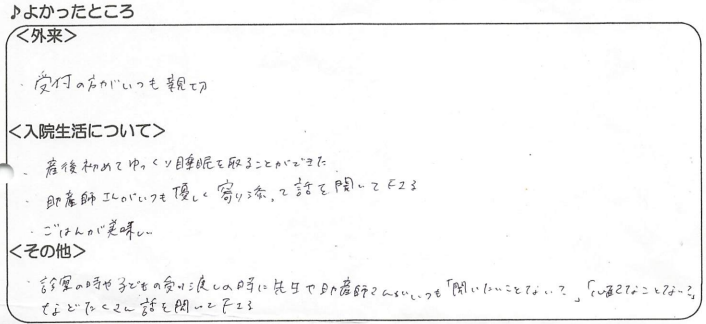 ♪よかったところ
<外来>
・受付の方がいつも親切
<入院生活について>
・産後初めてゆっくり睡眠を取ることができた
・助産師さんがいつも優しく寄り添って話を聞いて下さる
・ごはんが美味しい
<その他>
・診察の時や子どもの受け渡しの時に先生や助産師さんがいつも「聞いたいことない?」「心配なことない?」
などたくさん話を聞いて下さる